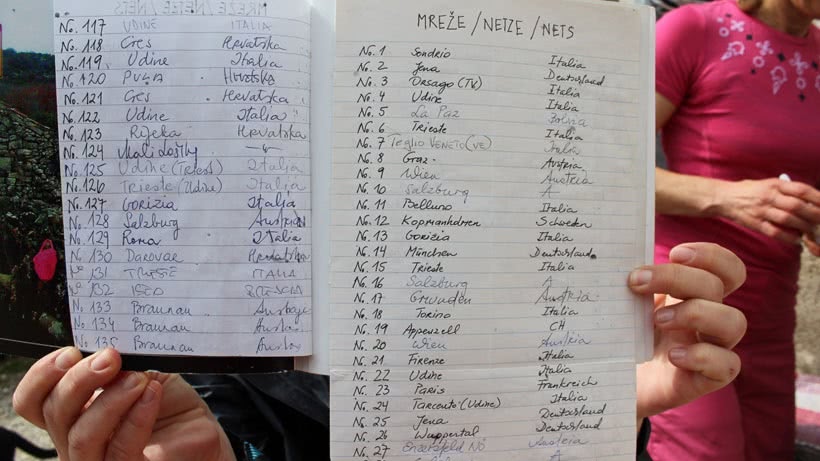 MREŽE/NETZE/NETS
No. 117 UDINE ITALIA
No. 118 Cres Hrvatska
No. 119 Udine Italia
No. 120 PULA Hrvatska
No. 121 Cres HRvatska
No. 122 Udine Italia
No. 123 Rijeka HRvatska
No. 124 Mali Lošinj
No. 125 Udine (Triest) Italia
No. 126 Trieste (Udine) Italia
No. 127 Gorizia Italia
No. 128 Salzburg Austria
No. 129 Roma Italia
No. 130 Daruvar Hrvatska
No 131 TRIESTE ITALIA
No 132 ISEO BRESCIA
No 133 Braunau
No. 134 Braunau
No. 135 Braunau
MREŽE/NETZE/NETS
No. 1 Sondrio Italia
No. 2 Jena Deutschland
No. 3 Orsago (TV) Italia
No. 4 Udine Italia
No. 5 La Paz
No. 6 Trieste Italia
No. 7 Teglio VENETO (VE) Italia
No. 8 Graz Austria
No. 9 Wien Austria
No. 10 Salzburg A
No. 11 Belluno Italia
No. 12 Schweden
No. 13 Gorizia Italia
No. 14 München Deutschland
No. 15 Trieste Italia
No. 16 Salzburg A
No. 17 Gmunden Austria
No. 18 Torino Italia
No. 19 Appenzell CH
No. 20 Wien Austria
No. 21 Firenze Italia
No. 22 Udine Italia
No. 23 Paris Frankreich
No. 24 Tarcento (Udine) Italia
No. 25 Jena Deutschland
No. 26 Wuppertal Deutschland
No. 27 NÖ Austria
A